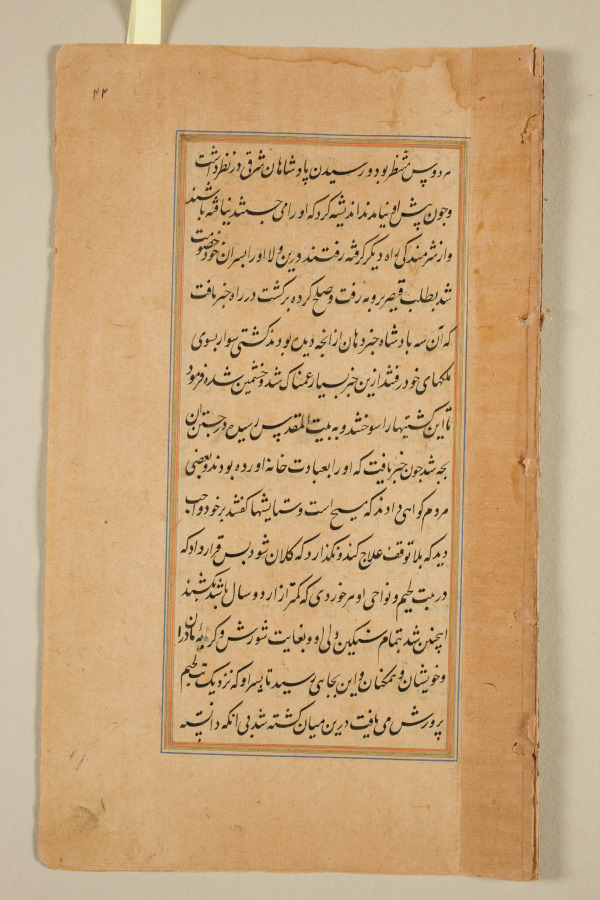 ۴۲
هردوس منتظر بود و رسیدن پادشاهان شرقی در نظر داشت
و چون پیش او نیامدند اندیشه کرد که او رای جستند نیافته باشند
و از شرمندگی راه دیگر گرفته رفتند درین ولا او را بسران خود خصومت
شد بطلب قیصر بروبه رفت و صلح کرده برگشت در راه خبر یافت
که آن سه بادشاه خبر دهان از انجه دیده بودند کشتی سوار بسوی
ملکهای خود رفتند ازین خبر بسیار غمناک شد و خشمین شده فرمود
تا این کشتیها را سوختند و به بیت المقدس رسیده در جستن آن
بچه شد چون خبر یافت که او را بعبادت خانه اورده بودند و بعضی
مردم کواهی دادند که مسیح است و ستایشها کفتند بر خود واجب
دید که بلا توقف علاج کند و نکذارد که کلان شود بس قرار داد که
در بیت لحیم و نواحی او هر خوردی که کمتر از دو سال باشد بکشند
اینچنین شد بتمام سنکین دلی او و بغایت شورش و کریهٔ مادران
و خویشان و همکنان و این بجاهی رسید تا بسر او که نزدیک بیت لحیم
پرورش می یافت درین میان کشته شد بی انکه دانسته